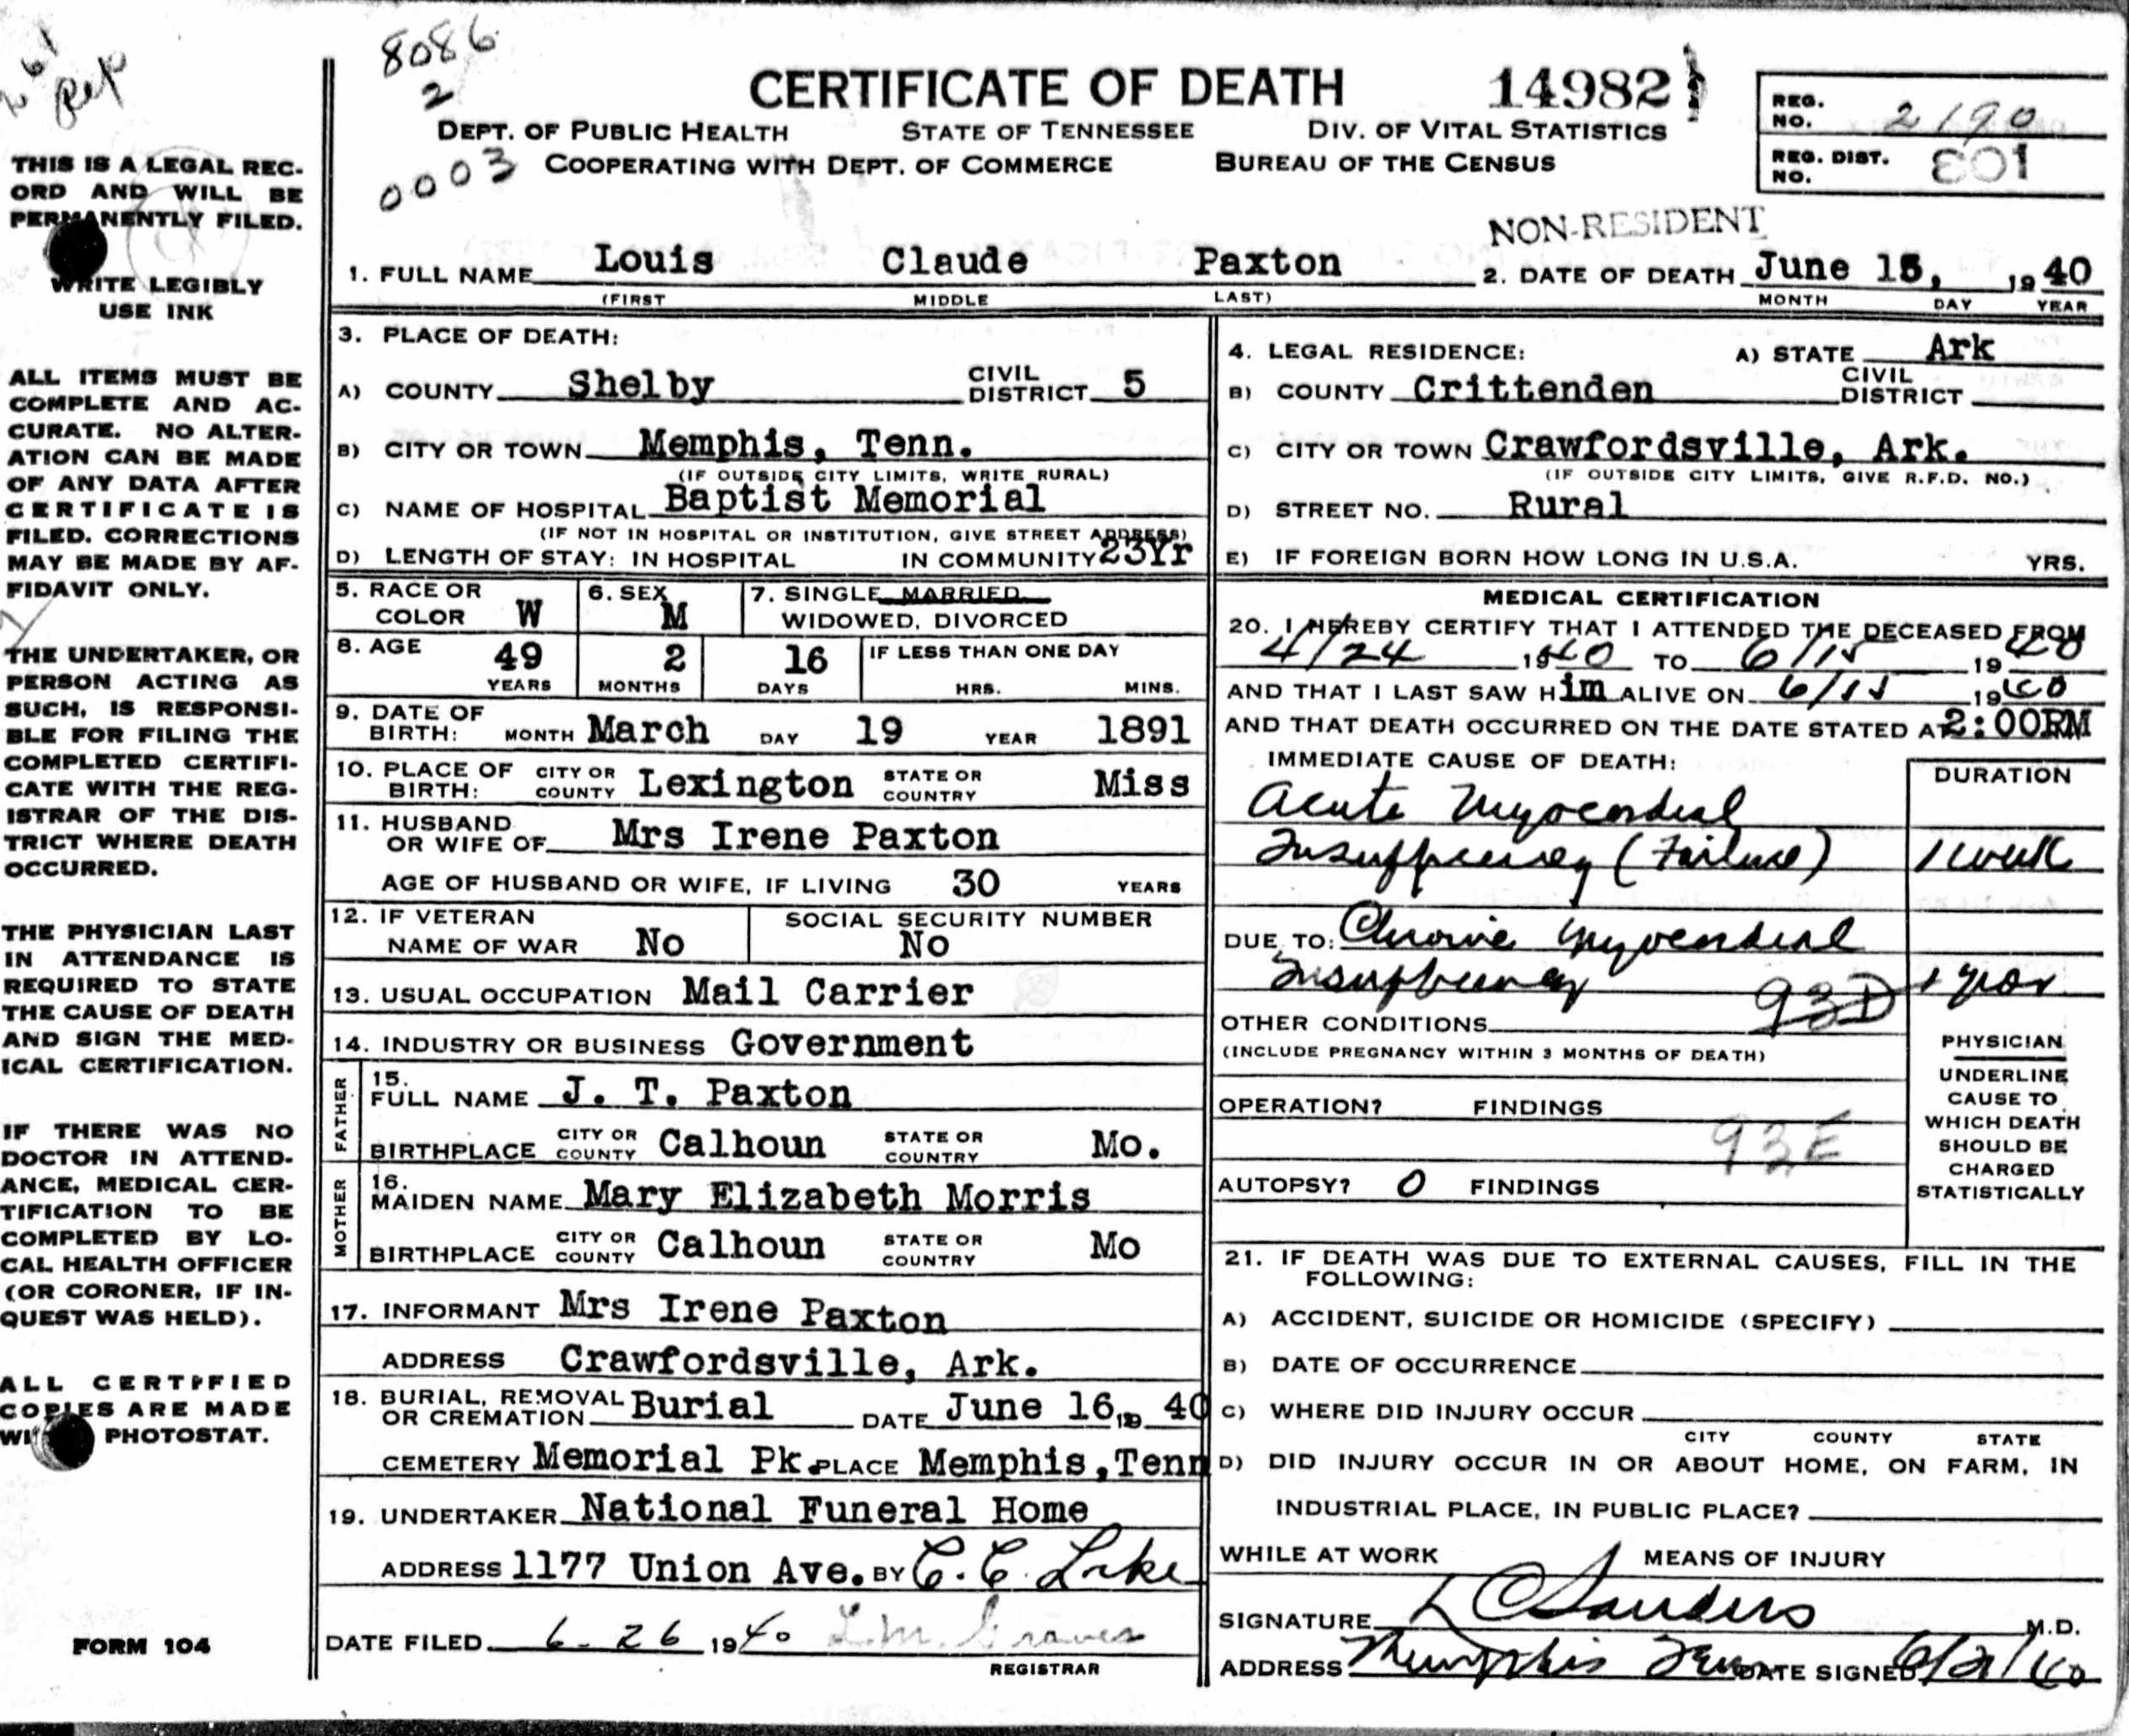 261
Rep
8086
2
0003
CERTIFICATE OF DEATH 14982
DEPT. OF PUBLIC HEALTH STATE OF TENNESSEE DIV. OF VITAL STATISTICS
COOPERATING WITH DEPT. OF COMMERCE BUREAU OF THE CENSUS
REG. NO. 2190
REG. DIST. NO. 801
NON-RESIDENT
THIS IS A LEGAL REC-
ORD AND WILL BE
PERMANENTLY FILED.
WRITE LEGIBLY
USE INK
ALL ITEMS MUST BE
COMPLETE AND AC-
CURATE. NO ALTER-
ATION CAN BE MADE
OF ANY DATA AFTER
CERTIFICATE IS
FILED. CORRECTIONS
MAY BE MADE BY AF-
FIDAVIT ONLY.
THE UNDERTAKER, OR
PERSON ACTING AS
SUCH, IS RESPONSI-
BLE FOR FILING THE
COMPLETED CERTIFI-
CATE WITH THE REG-
ISTRAR OF THE DIS-
TRICT WHERE DEATH
OCCURRED.
THE PHYSICIAN LAST
IN ATTENDANCE IS
REQUIRED TO STATE
THE CAUSE OF DEATH
AND SIGN THE MED-
ICAL CERTIFICATION.
IF THERE WAS NO
DOCTOR IN ATTEND-
ANCE, MEDICAL CER-
TIFICATION TO BE
COMPLETED BY LO-
CAL HEALTH OFFICER
(OR CORONER, IF IN-
QUEST WAS HELD).
ALL CERTIFIED
COPIES ARE MADE
WITH PHOTOSTAT.
FORM 104
1. FULL NAME Louis Claude Paxton 2. DATE OF DEATH June 15, 1940
(FIRST MIDDLE LAST) MONTH DAY YEAR
3. PLACE OF DEATH:
A) COUNTY Shelby CIVIL DISTRICT 5
B) CITY OR TOWN Memphis, Tenn.
(IF OUTSIDE CITY LIMITS, WRITE RURAL)
C) NAME OF HOSPITAL Baptist Memorial
(IF NOT IN HOSPITAL OR INSTITUTION, GIVE STREET ADDRESS)
D) LENGTH OF STAY: IN HOSPITAL IN COMMUNITY 23Yr
4. LEGAL RESIDENCE: A) STATE Ark
B) COUNTY Crittenden CIVIL DISTRICT
C) CITY OR TOWN Crawfordsville, Ark.
(IF OUTSIDE CITY LIMITS, GIVE R.F.D. NO.)
D) STREET NO. Rural
E) IF FOREIGN BORN HOW LONG IN U.S.A. YRS.
5. RACE OR COLOR W 6. SEX M 7. SINGLE MARRIED
WIDOWED, DIVORCED
8. AGE 49 2 16 IF LESS THAN ONE DAY
YEARS MONTHS DAYS HRS. MINS.
9. DATE OF BIRTH: MONTH March DAY 19 YEAR 1891
10. PLACE OF BIRTH: CITY OR COUNTY Lexington STATE OR COUNTRY Miss
11. HUSBAND OR WIFE OF Mrs Irene Paxton
AGE OF HUSBAND OR WIFE, IF LIVING 30 YEARS
12. IF VETERAN NAME OF WAR No SOCIAL SECURITY NUMBER No
13. USUAL OCCUPATION Mail Carrier
14. INDUSTRY OR BUSINESS Government
FATHER
15. FULL NAME J. T. Paxton
BIRTHPLACE CITY OR COUNTY Calhoun STATE OR COUNTRY Mo.
MOTHER
16. MAIDEN NAME Mary Elizabeth Morris
BIRTHPLACE CITY OR COUNTY Calhoun STATE OR COUNTRY Mo
17. INFORMANT Mrs Irene Paxton
ADDRESS Crawfordsville, Ark.
18. BURIAL, REMOVAL OR CREMATION Burial DATE June 16, 19 40
CEMETERY Memorial Pk. PLACE Memphis, Tenn
19. UNDERTAKER National Funeral Home
ADDRESS 1177 Union Ave. BY C. C. Lake
DATE FILED 6-26 1940 L.M. Graves
REGISTRAR
MEDICAL CERTIFICATION
20. I HEREBY CERTIFY THAT I ATTENDED THE DECEASED FROM
4/24 1940 TO 6/15 1940
AND THAT I LAST SAW Him ALIVE ON 6/15 1940
AND THAT DEATH OCCURRED ON THE DATE STATED AT 2:00PM
IMMEDIATE CAUSE OF DEATH: DURATION
Acute Myocardial
Insufficiency (Failure) 1 week
DUE TO: Chronic Myocardial
Insufficiency 93D 1 year
OTHER CONDITIONS
(INCLUDE PREGNANCY WITHIN 3 MONTHS OF DEATH)
OPERATION? FINDINGS
93E
AUTOPSY? 0 FINDINGS
PHYSICIAN
UNDERLINE
CAUSE TO
WHICH DEATH
SHOULD BE
CHARGED
STATISTICALLY
21. IF DEATH WAS DUE TO EXTERNAL CAUSES, FILL IN THE
FOLLOWING:
A) ACCIDENT, SUICIDE OR HOMICIDE (SPECIFY)
B) DATE OF OCCURRENCE
C) WHERE DID INJURY OCCUR
CITY COUNTY STATE
D) DID INJURY OCCUR IN OR ABOUT HOME, ON FARM, IN
INDUSTRIAL PLACE, IN PUBLIC PLACE?
WHILE AT WORK MEANS OF INJURY
SIGNATURE L C Sanders M.D.
ADDRESS Memphis Tenn DATE SIGNED 6/21/40